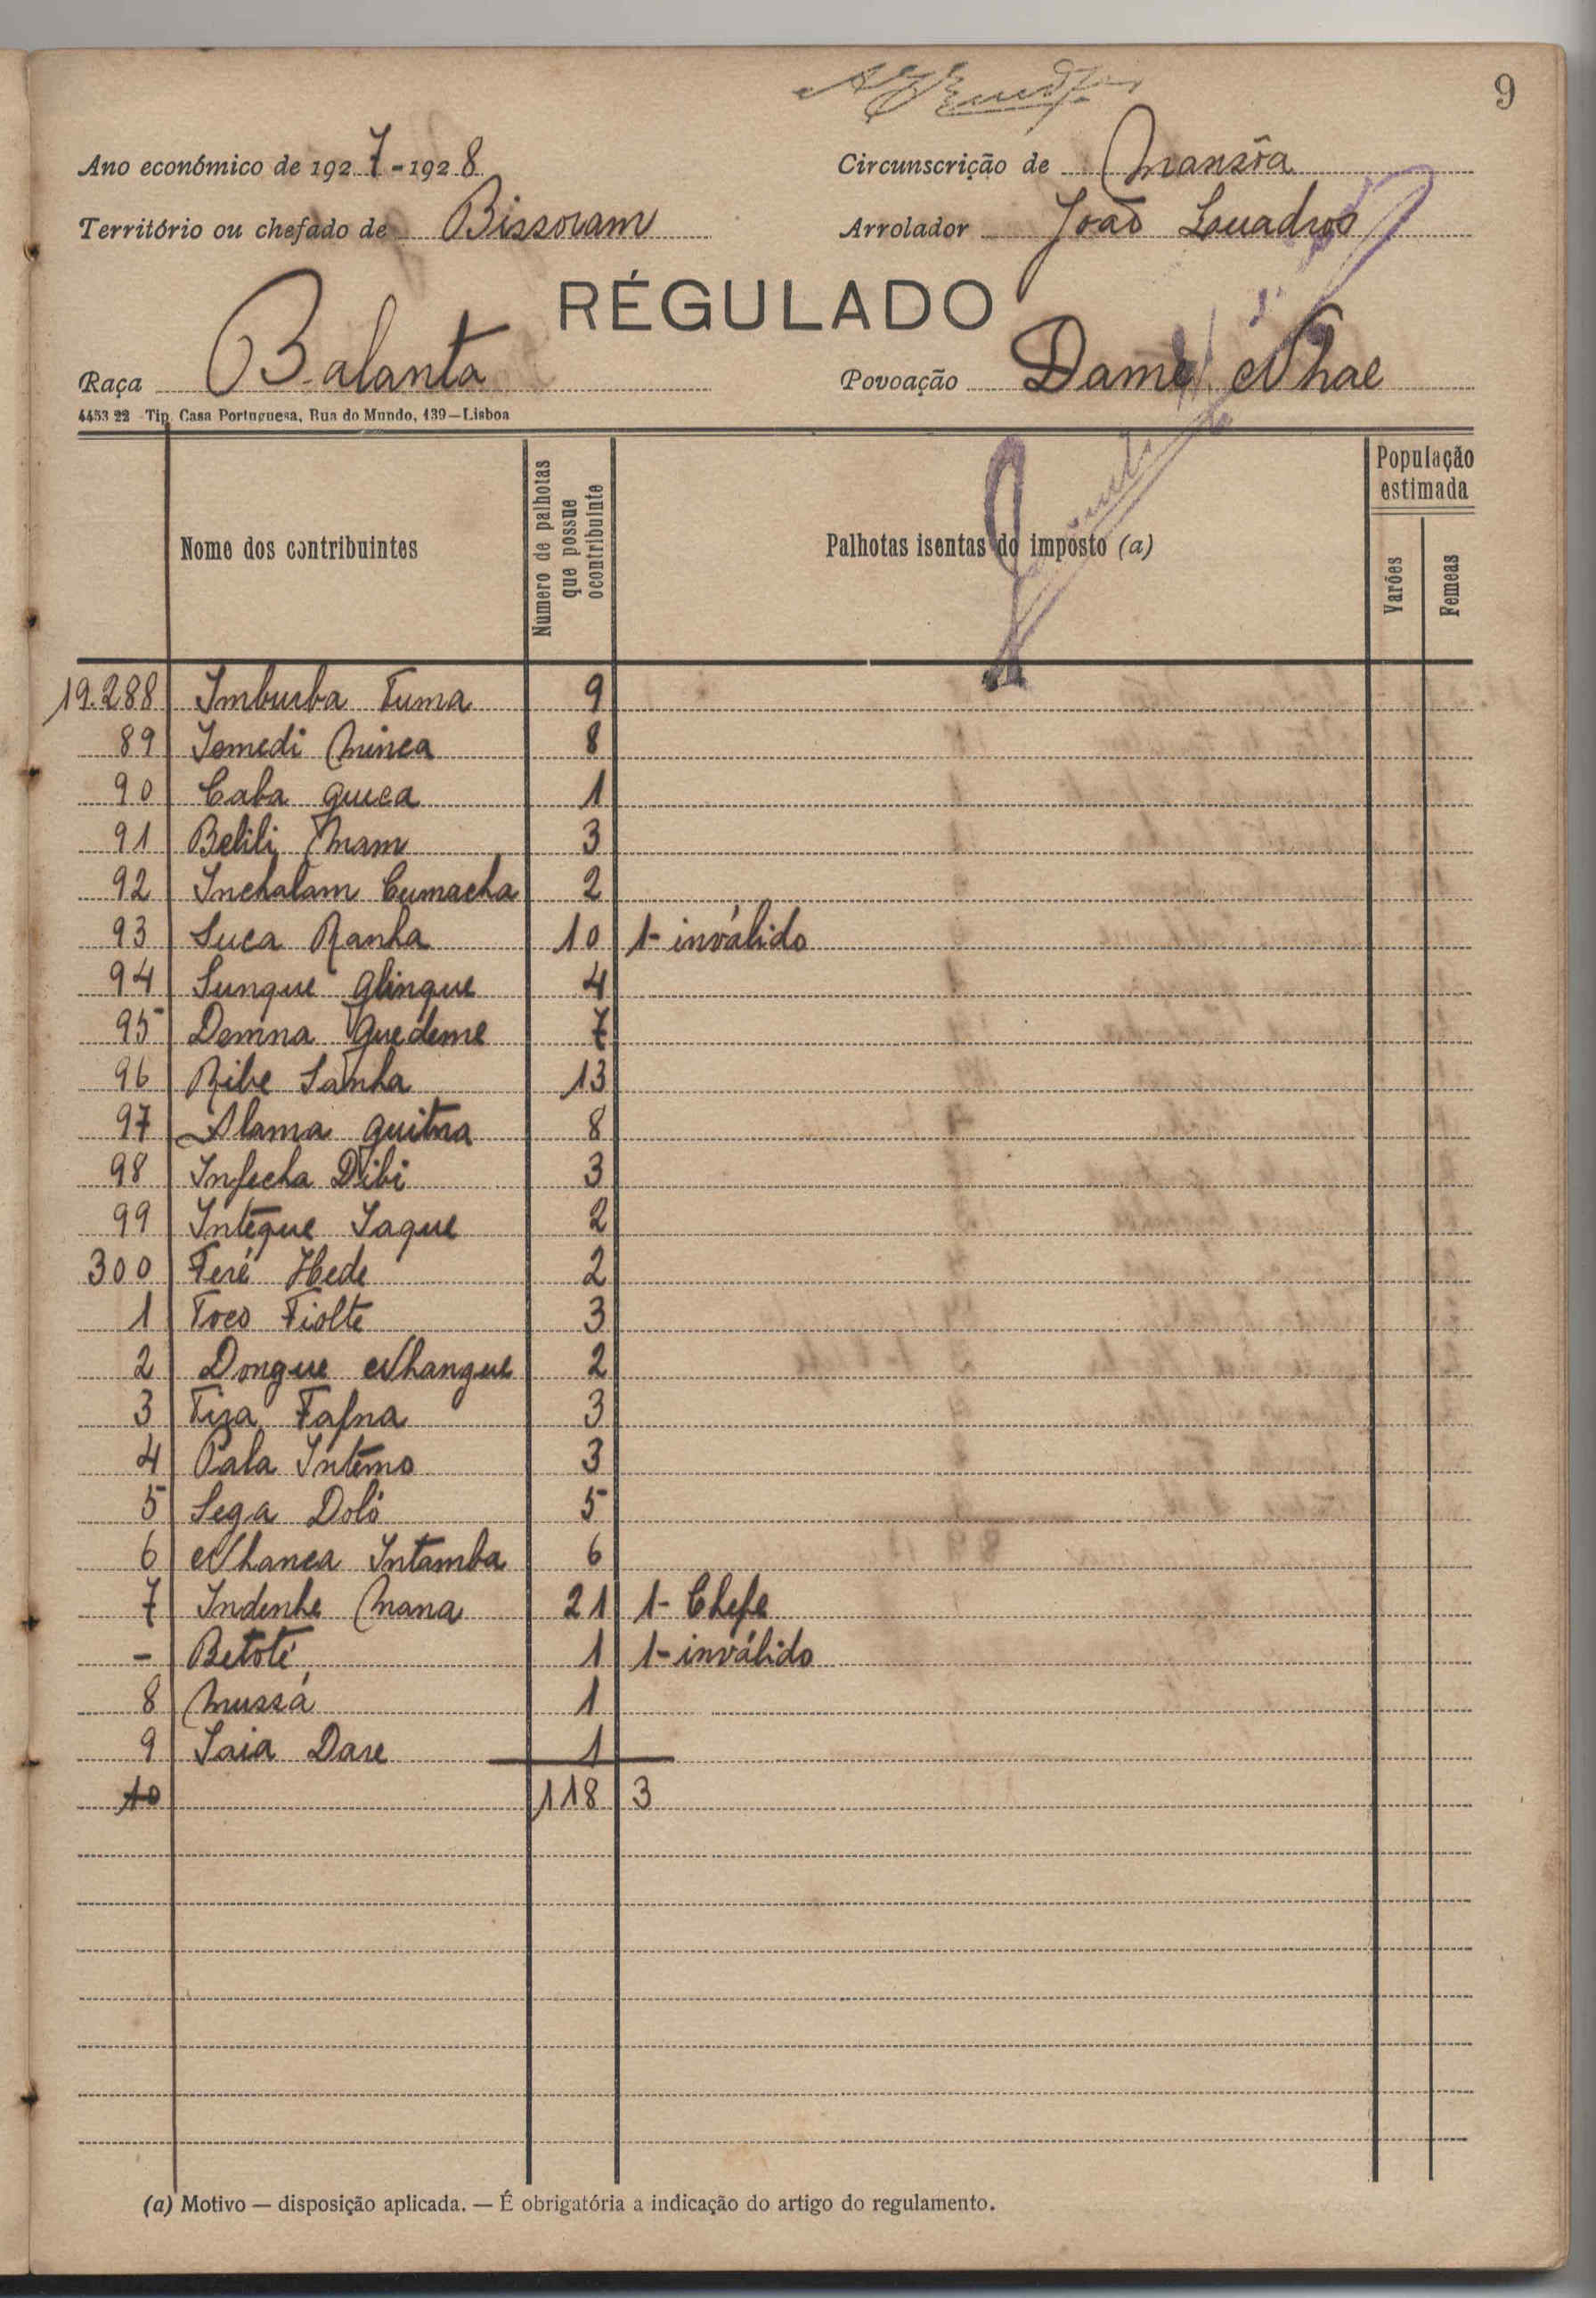 9
Ano económico de 1927-1928
Circunscrição de Mansôa
Território ou chefado de Bissoram
Arrolador João Quadros
RÉGULADO
Raça Balanta
Povoação Damé Nhae
4453 22 Tip. Casa Portuguesa, Rua do Mundo, 139—Lisboa
Nome dos contribuintes
Numero de palhotas que possue o contribuinte
Palhotas isentas do imposto (a)
População estimada
Varões
Femeas
19.288 Imburba Tuma 9
89 Jomedi Minca 8
90 Caba Guica 1
91 Belili Mam 3
92 Inchalam Cumacha 2
93 Suca Ranha 10 1- inválido
94 Sunque Glinque 4
95 Domna Guedeme 7
96 Ribe Sanha 13
97 Alama Guitna 8
98 Infecha Dibi 3
99 Intéque Iaque 2
300 Feré Hede 2
1 Toco Fiolte 3
2 Dongue Nhangue 2
3 Tiza Fafna 3
4 Pala Intemo 3
5 Sega Doló 5
6 Nhanca Intamba 6
7 Indenhe Mana 21 1- Chefe
- Betoté 1 1- inválido
8 Mussá 1
9 Saia Dare 1
10 118 3
(a) Motivo — disposição aplicada. — É obrigatória a indicação do artigo do regulamento.